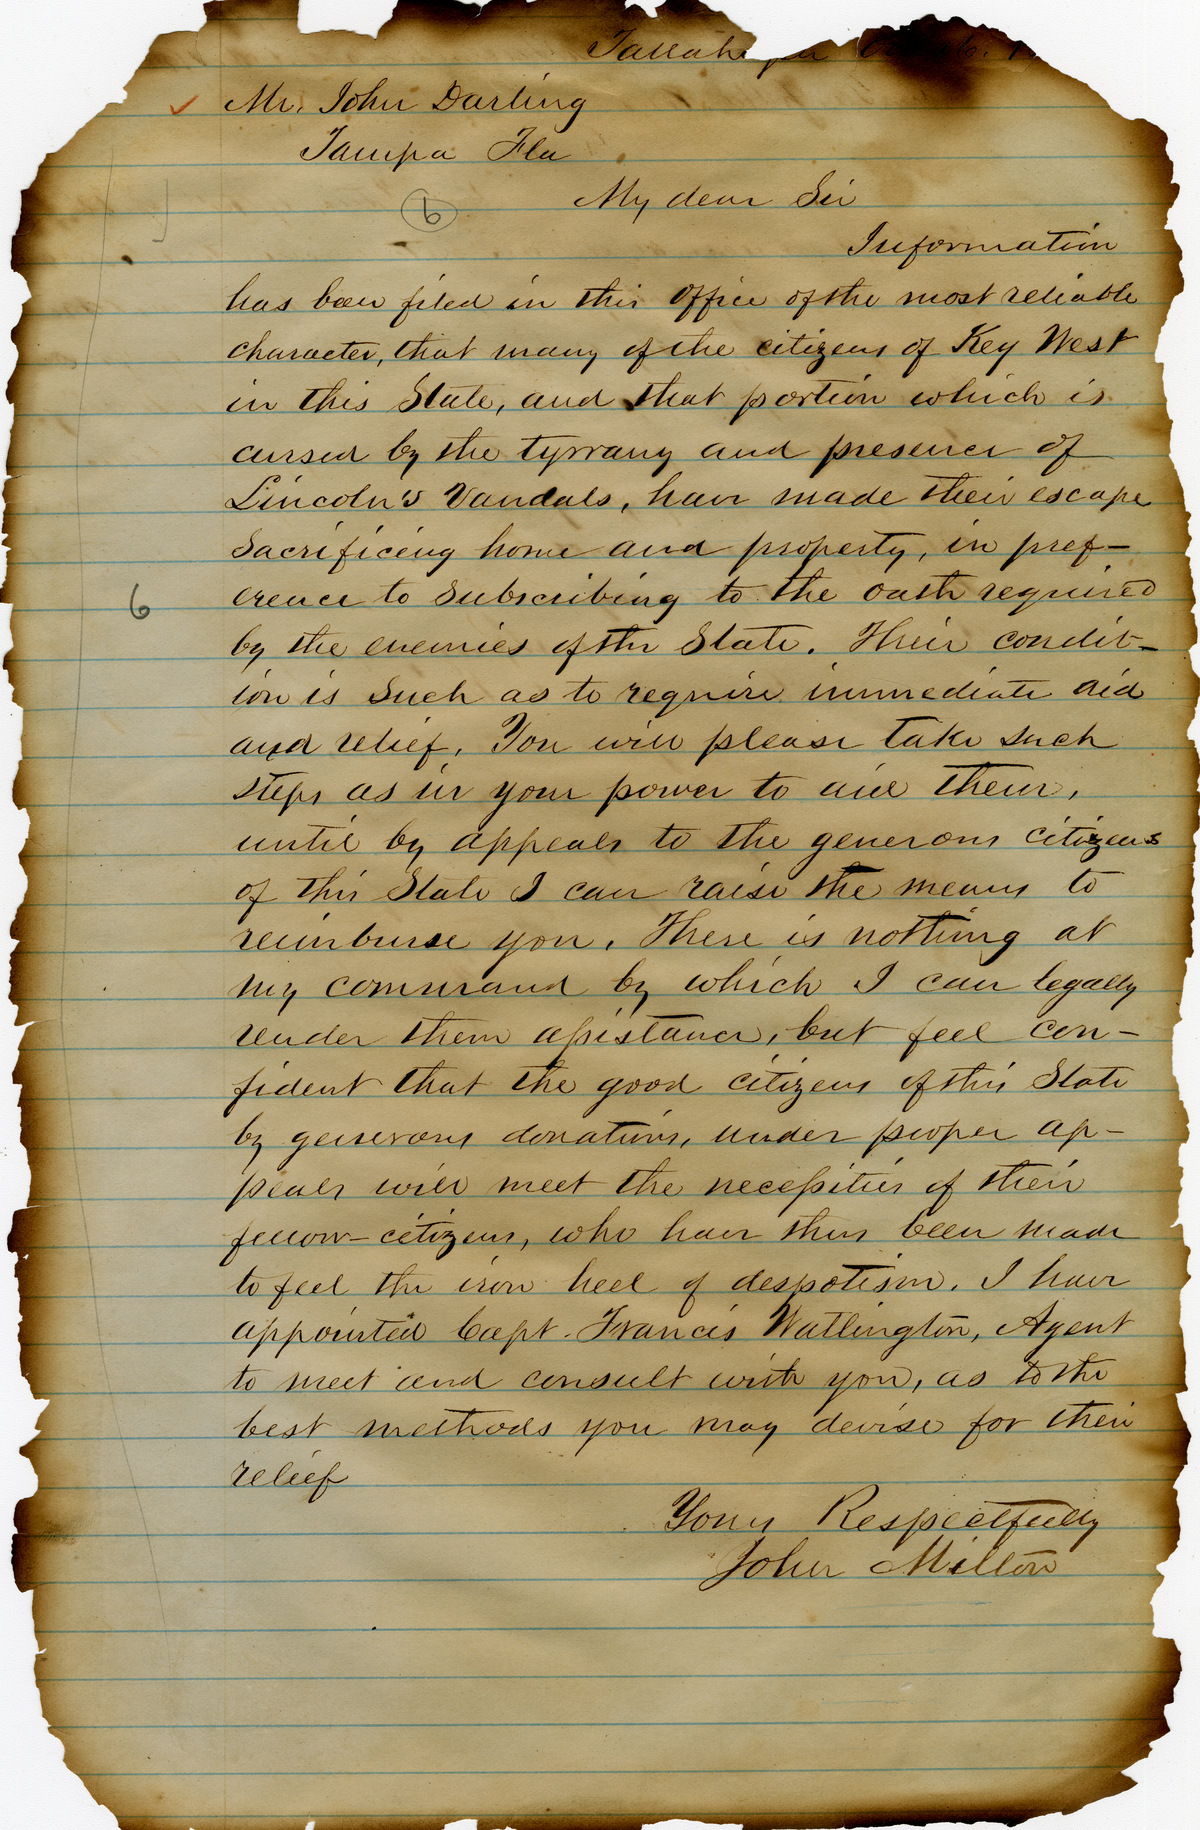 Tallaha
Mr. John Darling
Tampa Fla
6
My dear Sir
Information
has been filed in this office of the most reliable
character, that many of the citizens of Key West
in this State, and that portion which is
cursed by the tyrrany and presence of
Lincoln's Vandals, have made their escape
sacrificing home and property, in pref-
erence to subscribing to the oath required
6
by the enemies of the State. Their condit-
ion is such as to require immediate aid
and relief. You will please take such
steps as in your power to aid them,
until by appeals to the generous citizens
of this State I can raise the means to
reimburse you. There is nothing at
my command by which I can legally
render them assistance, but feel con-
fident that the good citizens of this State
by generous donations, under proper ap-
peals will meet the necessities of their
fellow-citizens, who have thus been made
to feel the iron heel of despotism. I have
appointed Capt. Francis Watlington, Agent
to meet and consult with you, as to the
best methods you may devise for their
relief
Yours Respectfully
John Milton